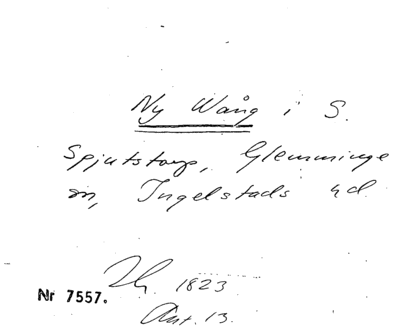 Ny Wång i S.
Spjutstorp, Glemminge
sn, Ingelstads hd
1823
Nr 7557.
Ant. 13.